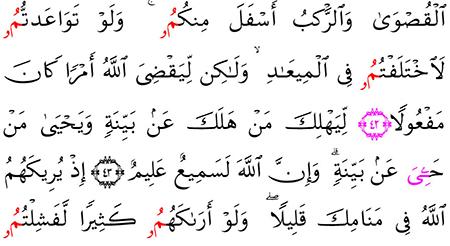 ٱلۡقُصۡوَىٰ وَٱلرَّكۡبُ أَسۡفَلَ مِنكُمُۥ ۚ وَلَوۡ تَوَاعَدتُّمُۥ
لَٱخۡتَلَفۡتُمُۥ فِي ٱلۡمِيعَٰدِ ۙ وَلَٰكِن لِّيَقۡضِيَ ٱللَّهُ أَمۡرٗا كَانَ
مَفۡعُولٗا ٤٢ لِّيَهۡلِكَ مَنۡ هَلَكَ عَنۢ بَيِّنَةٖ وَيَحۡيَىٰ مَنۡ
حَيِيَ عَنۢ بَيِّنَةٖ ۗ وَإِنَّ ٱللَّهَ لَسَمِيعٌ عَلِيمٌ ٤٣ إِذۡ يُرِيكَهُمُ
ٱللَّهُ فِي مَنَامِكَ قَلِيلٗا ۖ وَلَوۡ أَرَىٰكَهُمُۥ كَثِيرٗا لَّفَشِلۡتُمُۥ